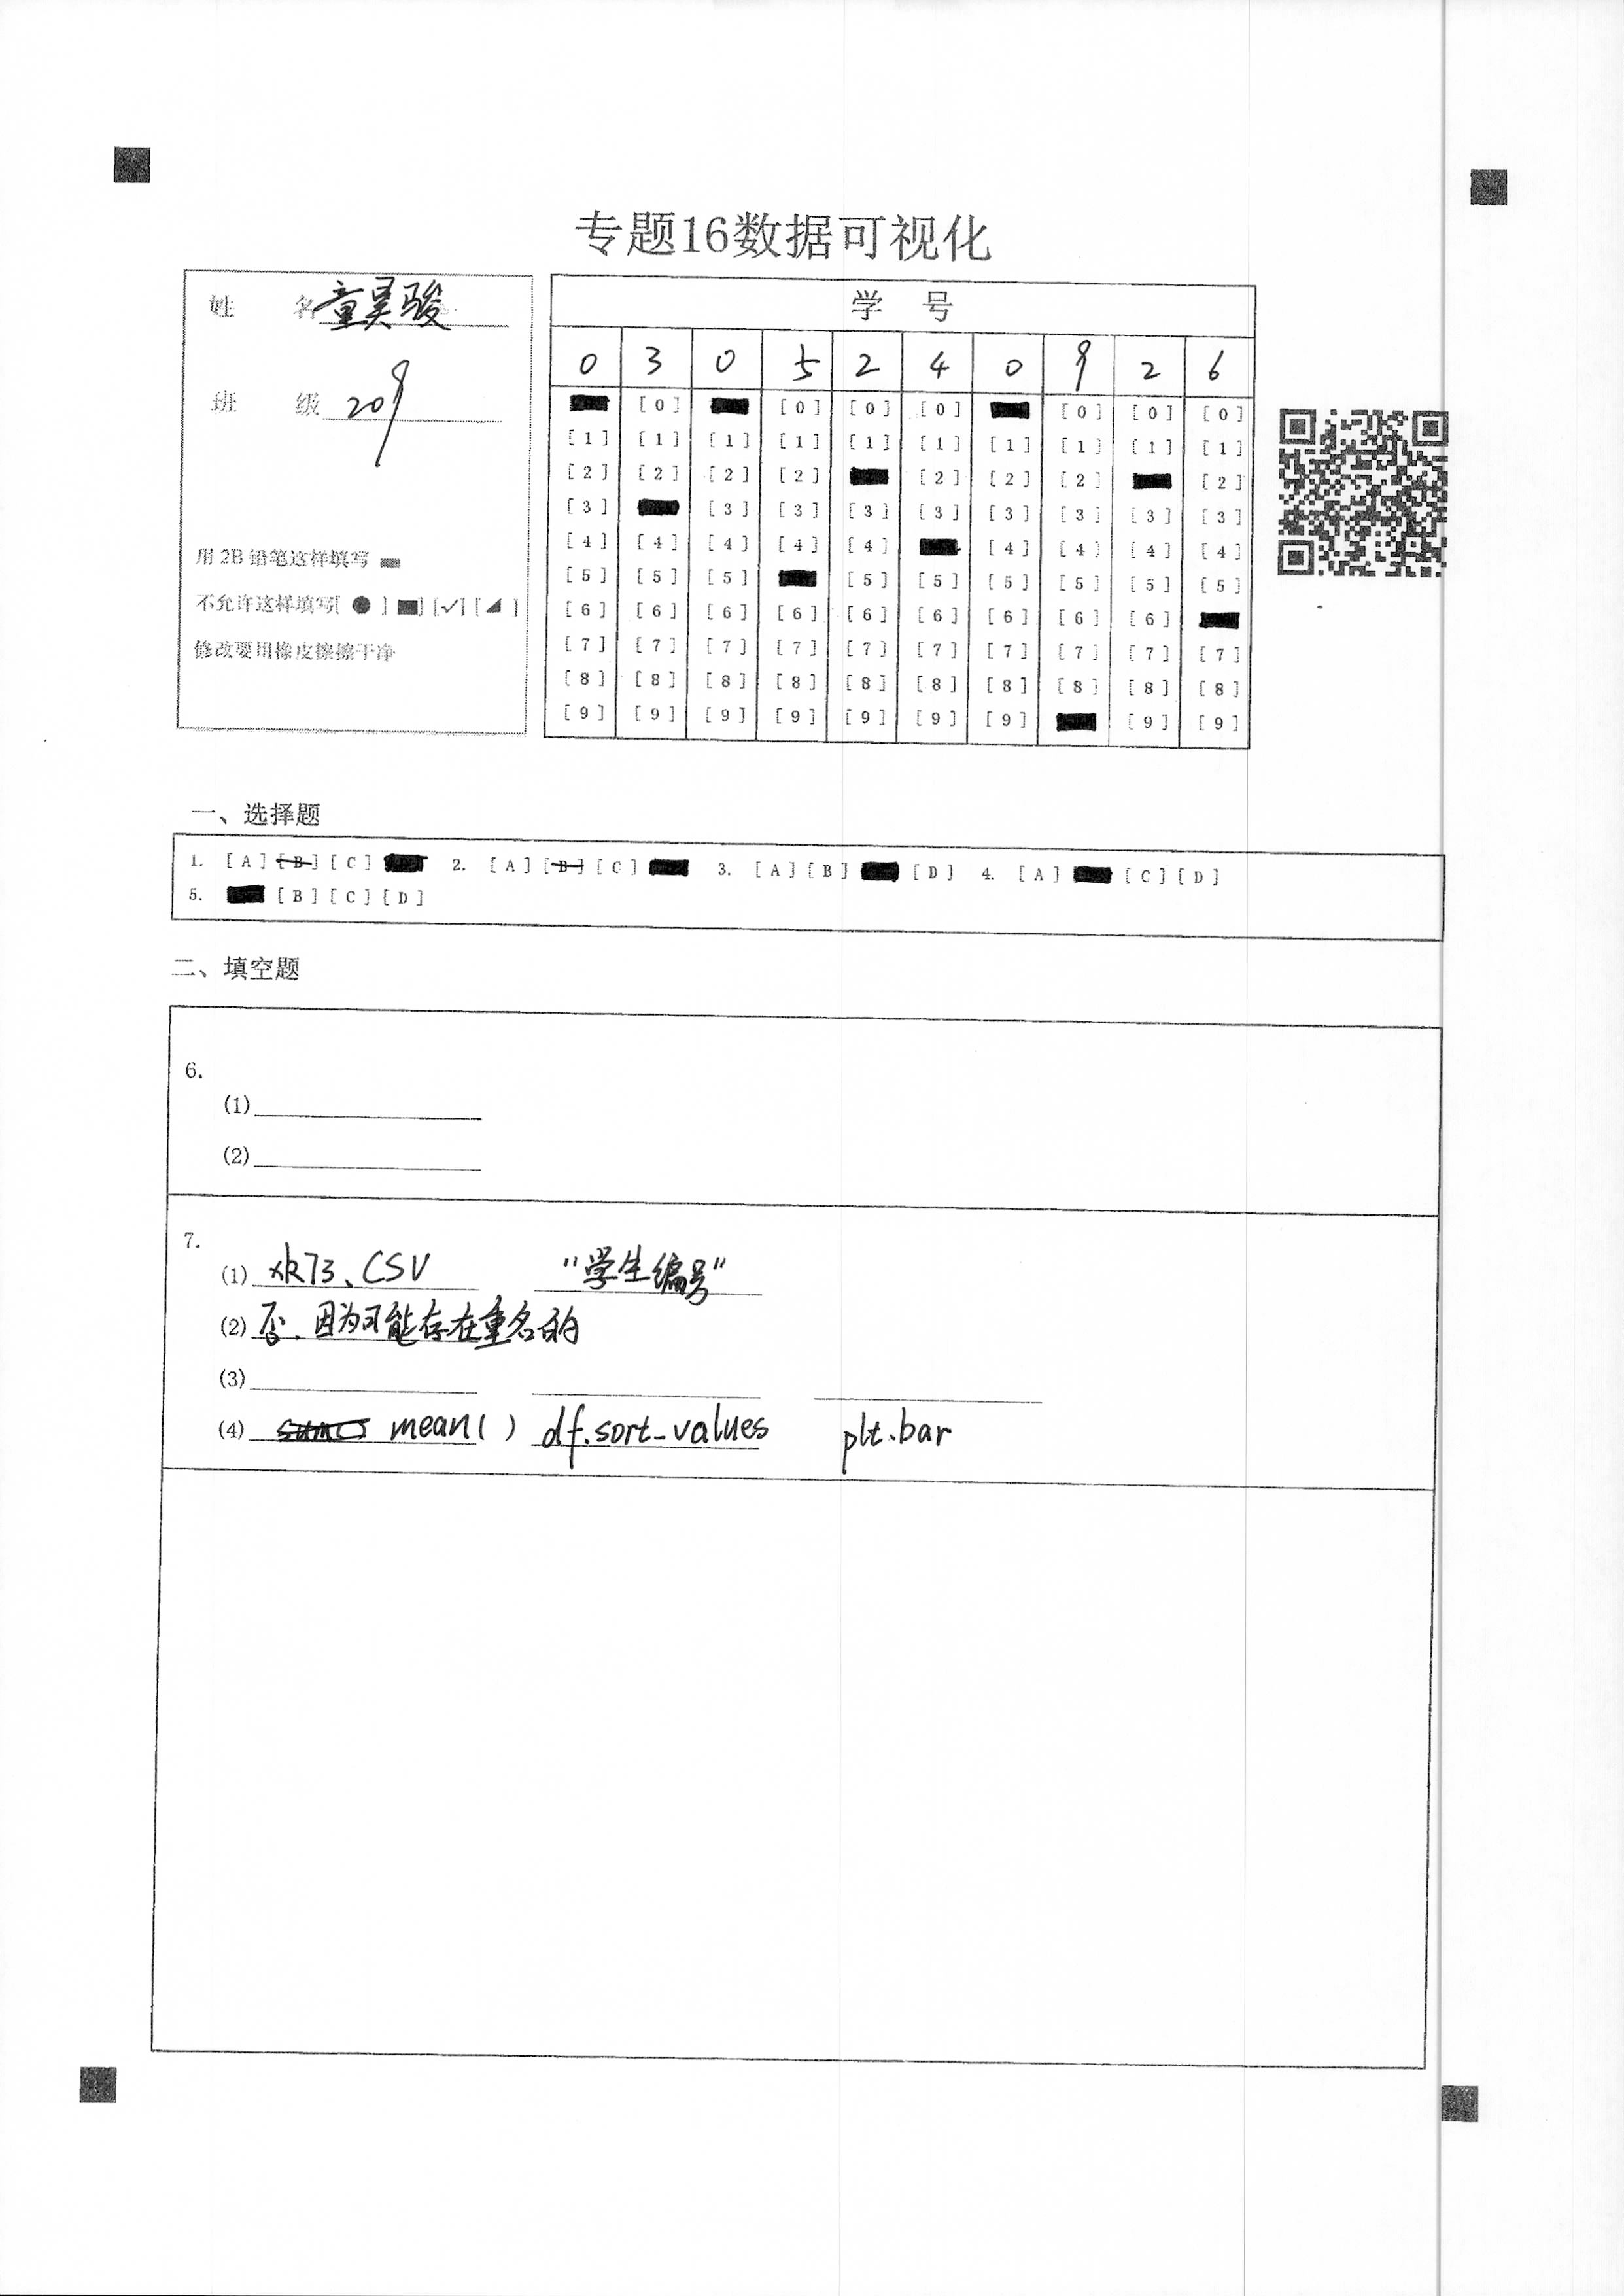 专题16数据可视化
姓 名 童昊骏
班 级 209
用 2B 铅笔这样填写
不允许这样填写[ ● ] ■] [✓] [◢ ]
修改要用橡皮擦擦干净
学 号
0 3 0 5 2 4 0 9 2 6
[0] [0] [0] [0] [0] [0]
[1] [1] [1] [1] [1] [1] [1] [1] [1] [1]
[2] [2] [2] [2] [2] [2] [2] [2]
[3] [3] [3] [3] [3] [3] [3] [3] [3]
[4] [4] [4] [4] [4] [4] [4] [4] [4]
[5] [5] [5] [5] [5] [5] [5] [5] [5]
[6] [6] [6] [6] [6] [6] [6] [6] [6]
[7] [7] [7] [7] [7] [7] [7] [7] [7] [7]
[8] [8] [8] [8] [8] [8] [8] [8] [8] [8]
[9] [9] [9] [9] [9] [9] [9] [9] [9]
一、选择题
1. [A] [B] [C] 2. [A] [B] [C] 3. [A] [B] [D] 4. [A] [C] [D]
5. [B] [C] [D]
二、填空题
6.
(1)
(2)
7.
(1) xk73、CSV "学生编号"
(2) 否、因为可能存在重名的
(3)
(4) mean() df.sort_values plt.bar